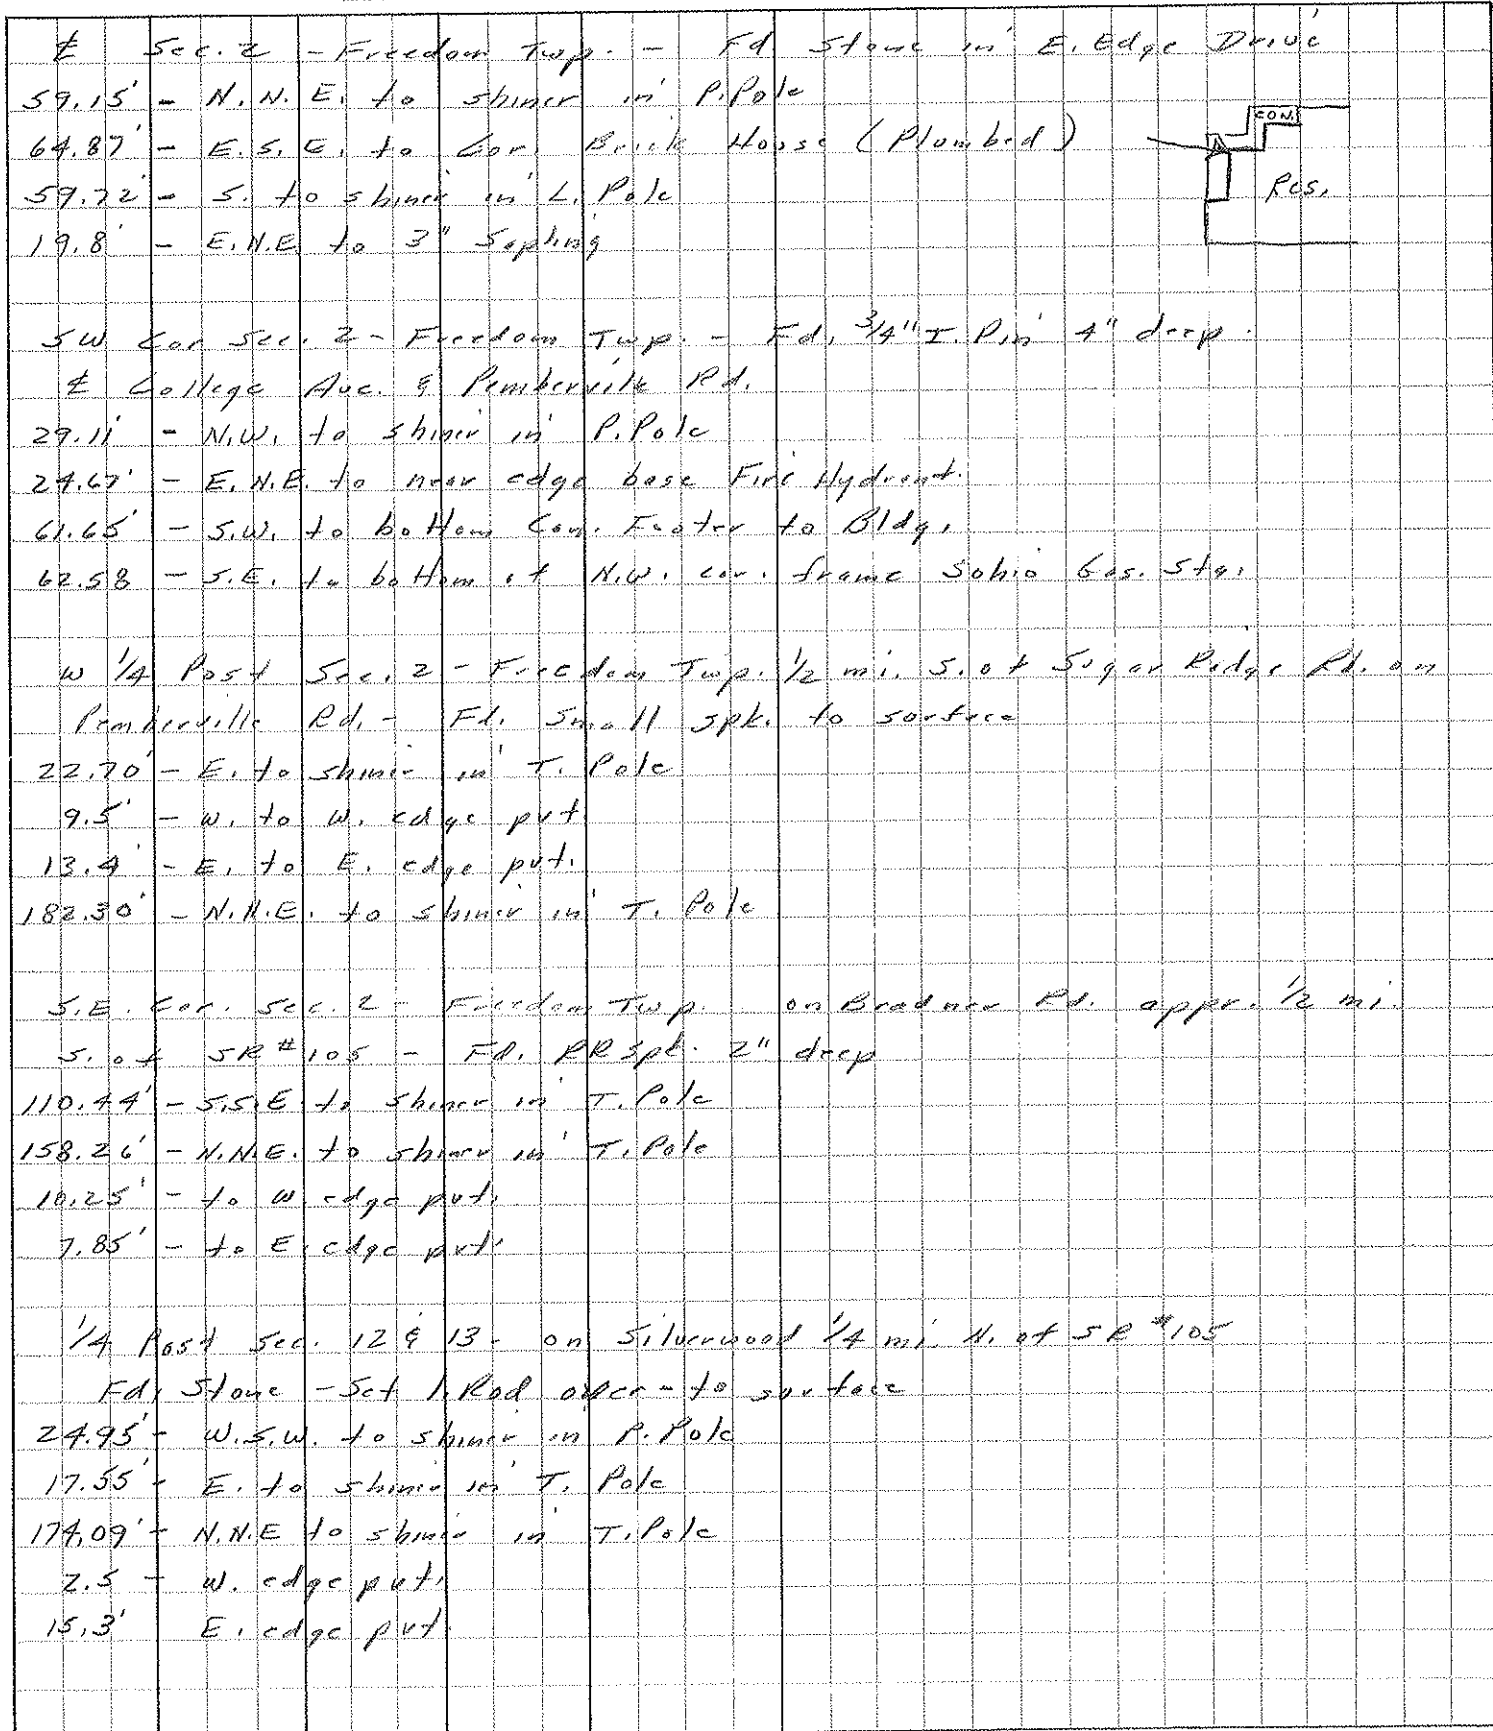 ℄ Sec. 2 - Freedom Twp. - Fd. Stone in E. Edge Drive
59.15' - N.N.E. to shiner in P. Pole
64.87' - E.S.E. to Cor. Brick House (Plumbed)
CON.
Res.
59.72' - S. to shiner in L. Pole
19.8' - E.N.E. to 3" Sapling
SW Cor Sec. 2 - Freedom Twp. - Fd. 3/4" I. Pin 4" deep.
℄ College Ave. & Pemberville Rd.
29.11' - N.W. to shiner in P. Pole
24.67' - E.N.E. to near edge base Fire Hydrant.
61.65' - S.W. to bottom Con. Footer to Bldg.
62.58 - S.E. to bottom of N.W. cor. frame Sohio Gas. Sta.
W 1/4 Post Sec. 2 - Freedom Twp. 1/2 mi. S. of Sugar Ridge Rd. on
Pemberville Rd. - Fd. Small spk. to surface
22.70' - E. to shiner in T. Pole
9.5' - W. to W. edge pvt.
13.4' - E. to E. edge pvt.
182.30' - N.N.E. to shiner in T. Pole
S.E. Cor. Sec. 2 - Freedom Twp. on Bradner Rd. appr. 1/2 mi.
S. of SR #105 - Fd. RR Spk. 2" deep
110.44' - S.S.E to shiner in T. Pole
158.26' - N.N.E. to shiner in T. Pole
10.25' - to W edge pvt.
7.85' - to E. edge pvt.
1/4 Post Sec. 12 & 13 - on Silverwood 1/4 mi. N. of SR #105
Fd. Stone - Set I. Rod over - to surface
24.95' - W.S.W. to shiner in P. Pole
17.55' - E. to shiner in T. Pole
174.09' - N.N.E to shiner in T. Pole
2.5 - W. edge pvt.
15.3' E. edge pvt.